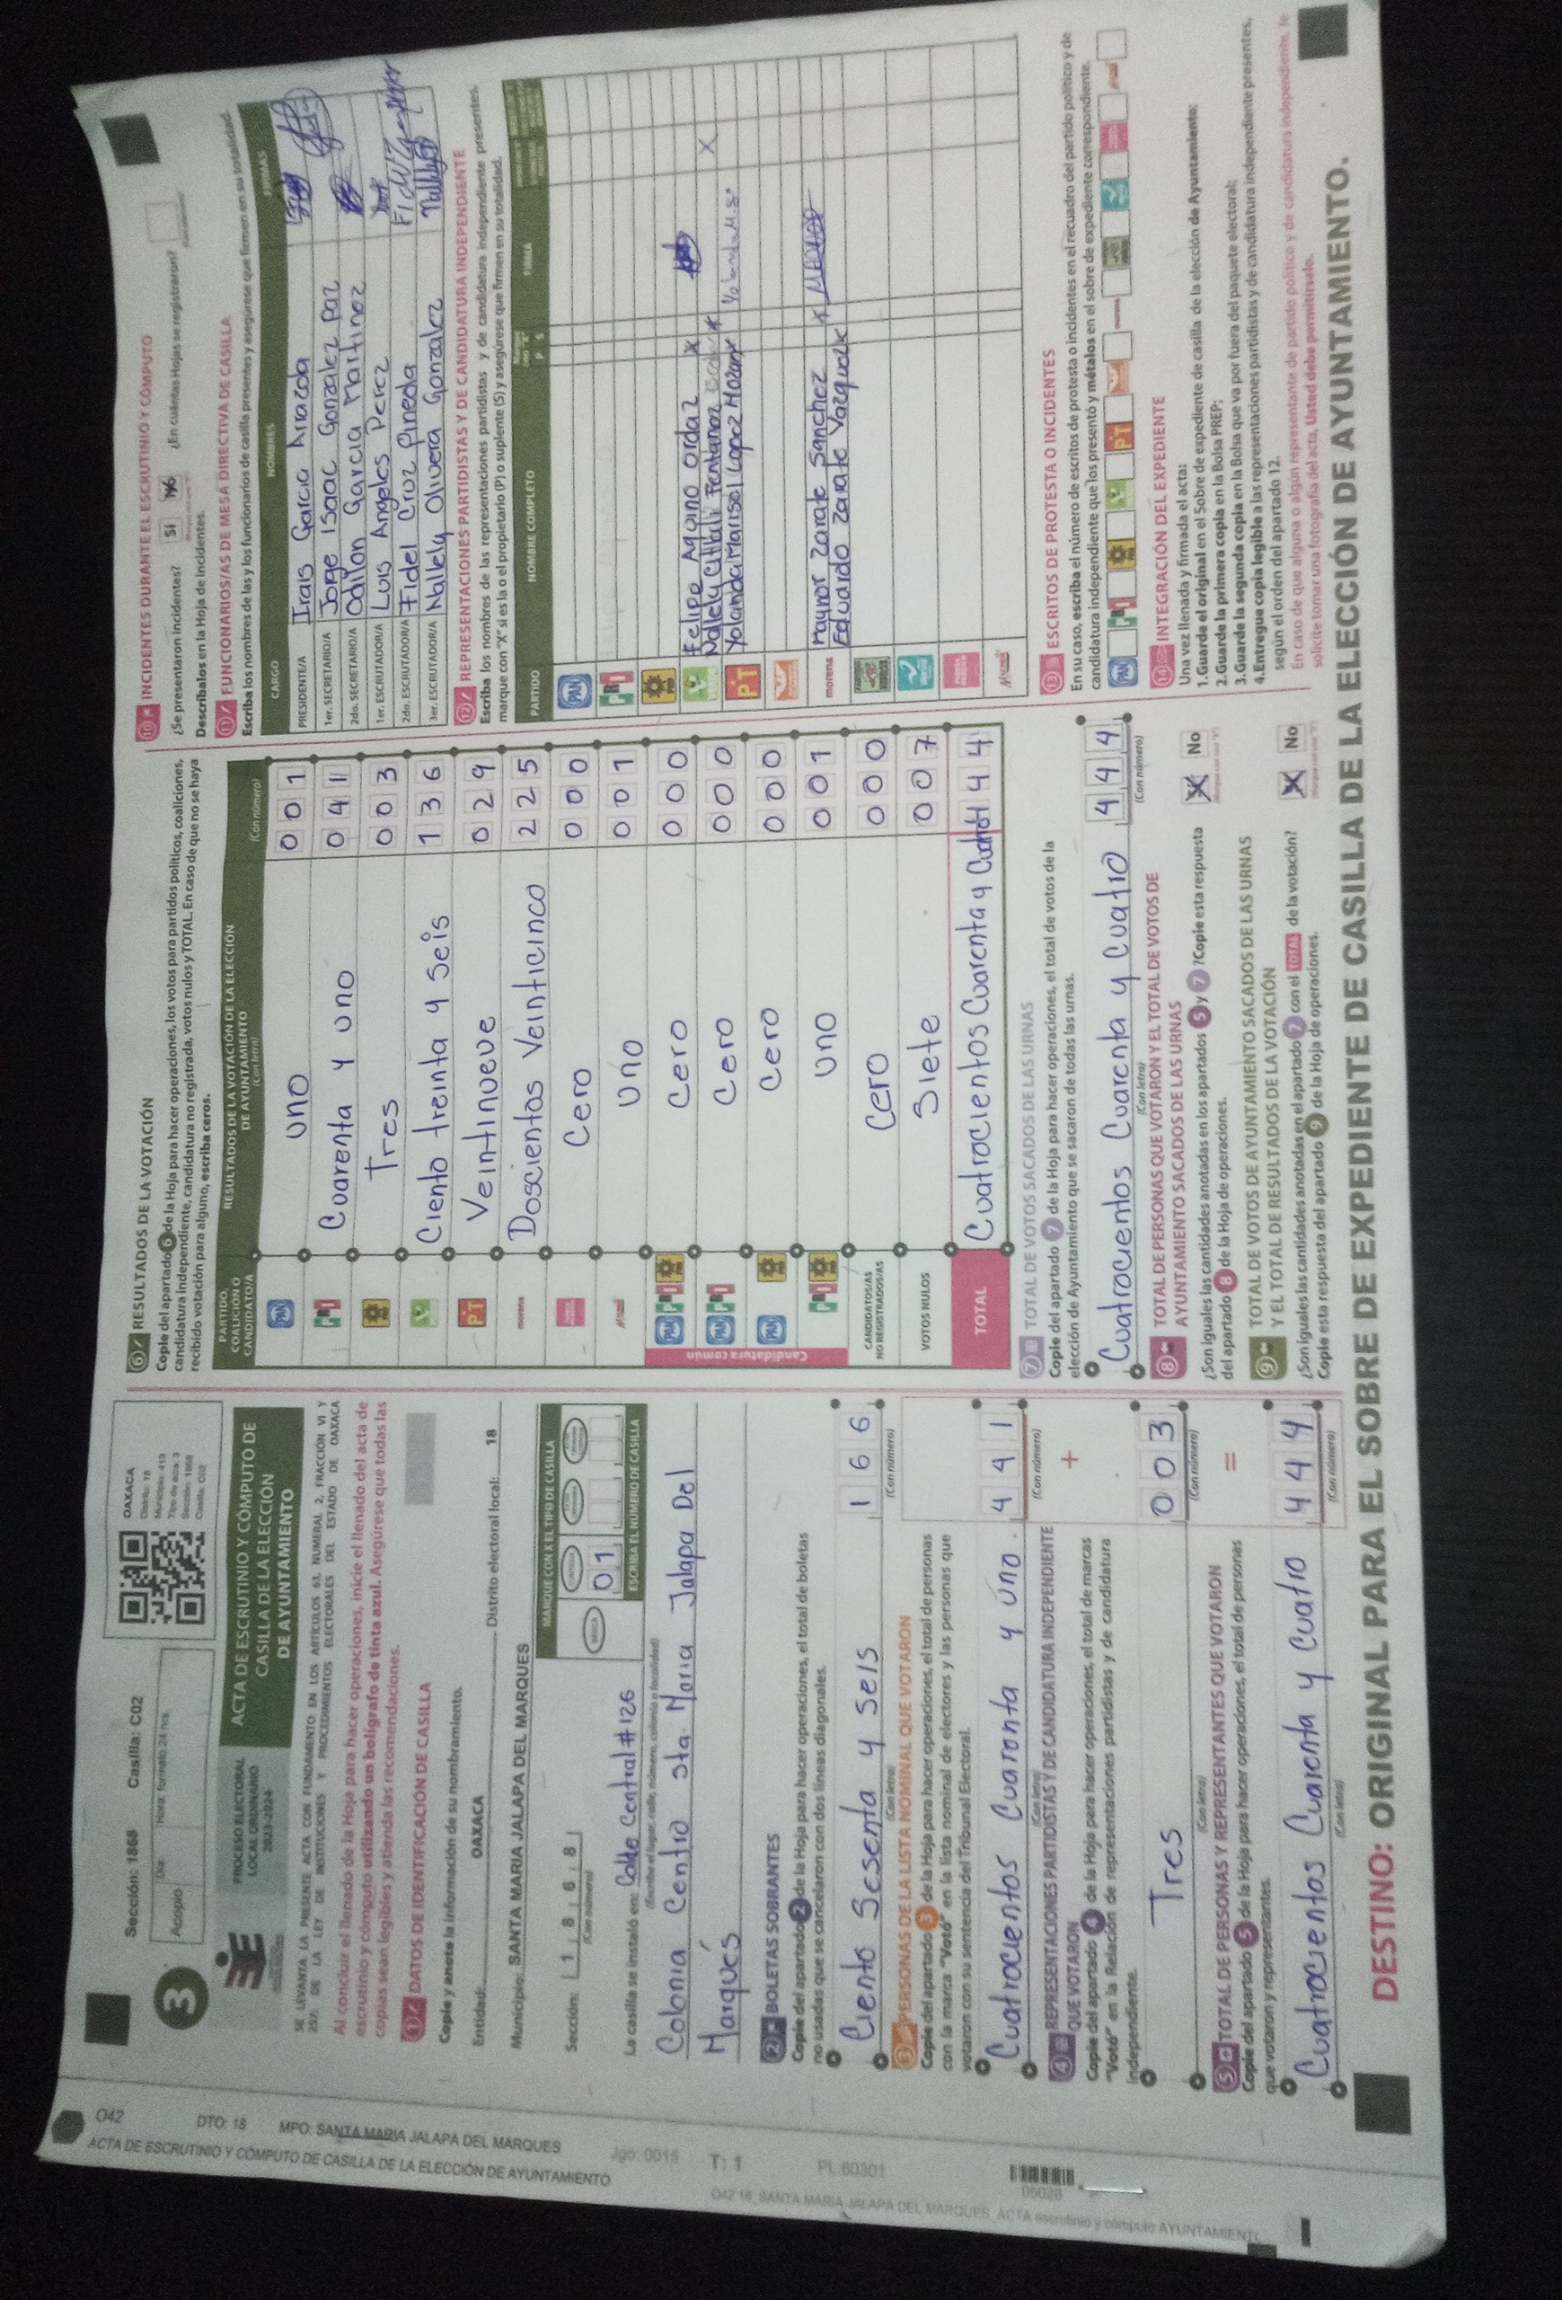 O42
DTO: 18
MPO: SANTA MARIA JALAPA DEL MARQUES
ACTA DE ESCRUTINIO Y CÓMPUTO DE CASILLA DE LA ELECCIÓN DE AYUNTAMIENTO
Jgo: 0015
T: 1
PL:60301
O42 18_SANTA MARIA JALAPA DEL MARQUES_ACTA escrutinio y cómputo AYUNTAMIENT
Sección: 1868 Casilla: C02
3
Acopio
Día
Hora, formato 24 hrs.
OAXACA
Distrito: 18
Municipio: 413
Tipo de acta: 3
Sección: 1868
Casilla: C02
PROCESO ELECTORAL
LOCAL ORDINARIO
2023-2024
ACTA DE ESCRUTINIO Y CÓMPUTO DE
CASILLA DE LA ELECCIÓN
DE AYUNTAMIENTO
SE LEVANTA LA PRESENTE ACTA CON FUNDAMENTO EN LOS ARTÍCULOS 63, NUMERAL 2, FRACCIÓN VI Y
257; DE LA LEY DE INSTITUCIONES Y PROCEDIMIENTOS ELECTORALES DEL ESTADO DE OAXACA
Al concluir el llenado de la Hoja para hacer operaciones, inicie el llenado del acta de
escrutinio y cómputo utilizando un bolígrafo de tinta azul. Asegúrese que todas las
copias sean legibles y atienda las recomendaciones.
1 DATOS DE IDENTIFICACIÓN DE CASILLA
Copie y anote la información de su nombramiento.
Entidad: OAXACA Distrito electoral local: 18
Municipio: SANTA MARIA JALAPA DEL MARQUES
Sección: 1 8 6 8
(Con número)
MARQUE CON X EL TIPO DE CASILLA
01
ESCRIBA EL NÚMERO DE CASILLA
La casilla se instaló en: Calle Central #126
(Escriba el lugar, calle, número, colonia o localidad)
Colonia Centro Sta. Maria Jalapa Del
Marqués
2 BOLETAS SOBRANTES
Copie del apartado 2 de la Hoja para hacer operaciones, el total de boletas
no usadas que se cancelaron con dos líneas diagonales.
Ciento Sesenta y Seis 1 6 6
(Con letra) (Con número)
3 PERSONAS DE LA LISTA NOMINAL QUE VOTARON
Copie del apartado 3 de la Hoja para hacer operaciones, el total de personas
con la marca "Votó" en la lista nominal de electores y las personas que
votaron con su sentencia del Tribunal Electoral.
Cuatrocientos Cuaronta y Uno. 4 4 1
(Con letra) (Con número)
4 REPRESENTACIONES PARTIDISTAS Y DE CANDIDATURA INDEPENDIENTE
QUE VOTARON +
Copie del apartado 4 de la Hoja para hacer operaciones, el total de marcas
"Votó" en la Relación de representaciones partidistas y de candidatura
independiente.
Tres 0 0 3
(Con letra) (Con número)
5 TOTAL DE PERSONAS Y REPRESENTANTES QUE VOTARON =
Copie del apartado 5 de la Hoja para hacer operaciones, el total de personas
que votaron y representantes.
Cuatrocientos Cuarenta y Cuatro 4 4 4
(Con letra) (Con número)
6 RESULTADOS DE LA VOTACIÓN
Copie del apartado 6 de la Hoja para hacer operaciones, los votos para partidos políticos, coaliciones,
candidatura independiente, candidatura no registrada, votos nulos y TOTAL. En caso de que no se haya
recibido votación para alguno, escriba ceros.
PARTIDO,
COALICIÓN O
CANDIDATO/A
RESULTADOS DE LA VOTACIÓN DE LA ELECCIÓN
DE AYUNTAMIENTO
(Con letra) (Con número)
PAN uno 0 0 1
PRI Cuarenta y uno 0 4 1
Tres 0 0 3
Ciento treinta y Seis 1 3 6
PT Veintinueve 0 2 9
morena Doscientos Veinticinco 2 2 5
Cero 0 0 0
Uno 0 0 1
Candidatura común
PAN PRI Cero 0 0 0
PAN PRI Cero 0 0 0
PAN Cero 0 0 0
PRI uno 0 0 1
CANDIDATOS/AS
NO REGISTRADOS/AS Cero 0 0 0
VOTOS NULOS Siete 0 0 7
TOTAL Cuatrocientos Cuarenta y Cuatro 4 4 4
7 TOTAL DE VOTOS SACADOS DE LAS URNAS
Copie del apartado 7 de la Hoja para hacer operaciones, el total de votos de la
elección de Ayuntamiento que se sacaron de todas las urnas.
Cuatrocientos Cuarenta y Cuatro 4 4 4
(Con letra) (Con número)
8 TOTAL DE PERSONAS QUE VOTARON Y EL TOTAL DE VOTOS DE
AYUNTAMIENTO SACADOS DE LAS URNAS
¿Son iguales las cantidades anotadas en los apartados 5 y 7? Copie esta respuesta
del apartado 8 de la Hoja de operaciones. X No
9 TOTAL DE VOTOS DE AYUNTAMIENTO SACADOS DE LAS URNAS
Y EL TOTAL DE RESULTADOS DE LA VOTACIÓN
¿Son iguales las cantidades anotadas en el apartado 7 con el TOTAL de la votación?
Copie esta respuesta del apartado 9 de la Hoja de operaciones. X No
10 INCIDENTES DURANTE EL ESCRUTINIO Y CÓMPUTO
¿Se presentaron incidentes? Sí No ¿En cuántas Hojas se registraron?
Descríbalos en la Hoja de Incidentes.
11 FUNCIONARIOS/AS DE MESA DIRECTIVA DE CASILLA
Escriba los nombres de las y los funcionarios de casilla presentes y asegúrese que firmen en su totalidad.
CARGO NOMBRES FIRMAS
PRESIDENTE/A Irais Garcia Arrazola
1er. SECRETARIO/A Jorge Isaac Gonzalez Paz
2do. SECRETARIO/A Odilon Garcia Martinez
1er. ESCRUTADOR/A Luis Angeles Perez
2do. ESCRUTADOR/A Fidel Cruz Pineda
3er. ESCRUTADOR/A Nallely Olivera Gonzalez
12 REPRESENTACIONES PARTIDISTAS Y DE CANDIDATURA INDEPENDIENTE
Escriba los nombres de las representaciones partidistas y de candidatura independiente presentes,
marque con "X" si es la o el propietario (P) o suplente (S) y asegúrese que firmen en su totalidad.
PARTIDO NOMBRE COMPLETO P S FIRMA
PAN
PRI
Felipe Aquino Ordaz X
Nallely Citlali
PT Yolanda Marisol Lopez X
morena Maynor Zarate Sanchez X
Eduardo Zarate
13 ESCRITOS DE PROTESTA O INCIDENTES
En su caso, escriba el número de escritos de protesta o incidentes en el recuadro del partido político y de
candidatura independiente que los presentó y métalos en el sobre de expediente correspondiente.
PAN PRI PT
14 INTEGRACIÓN DEL EXPEDIENTE
Una vez llenada y firmada el acta:
1.Guarde el original en el Sobre de expediente de casilla de la elección de Ayuntamiento;
2.Guarde la primera copia en la Bolsa PREP;
3.Guarde la segunda copia en la Bolsa que va por fuera del paquete electoral;
4.Entregue copia legible a las representaciones partidistas y de candidatura independiente presentes,
según el orden del apartado 12.
En caso de que alguna o algún representante de partido político y de candidatura independiente, le
solicite tomar una fotografía del acta, Usted debe permitírselo.
DESTINO: ORIGINAL PARA EL SOBRE DE EXPEDIENTE DE CASILLA DE LA ELECCIÓN DE AYUNTAMIENTO.